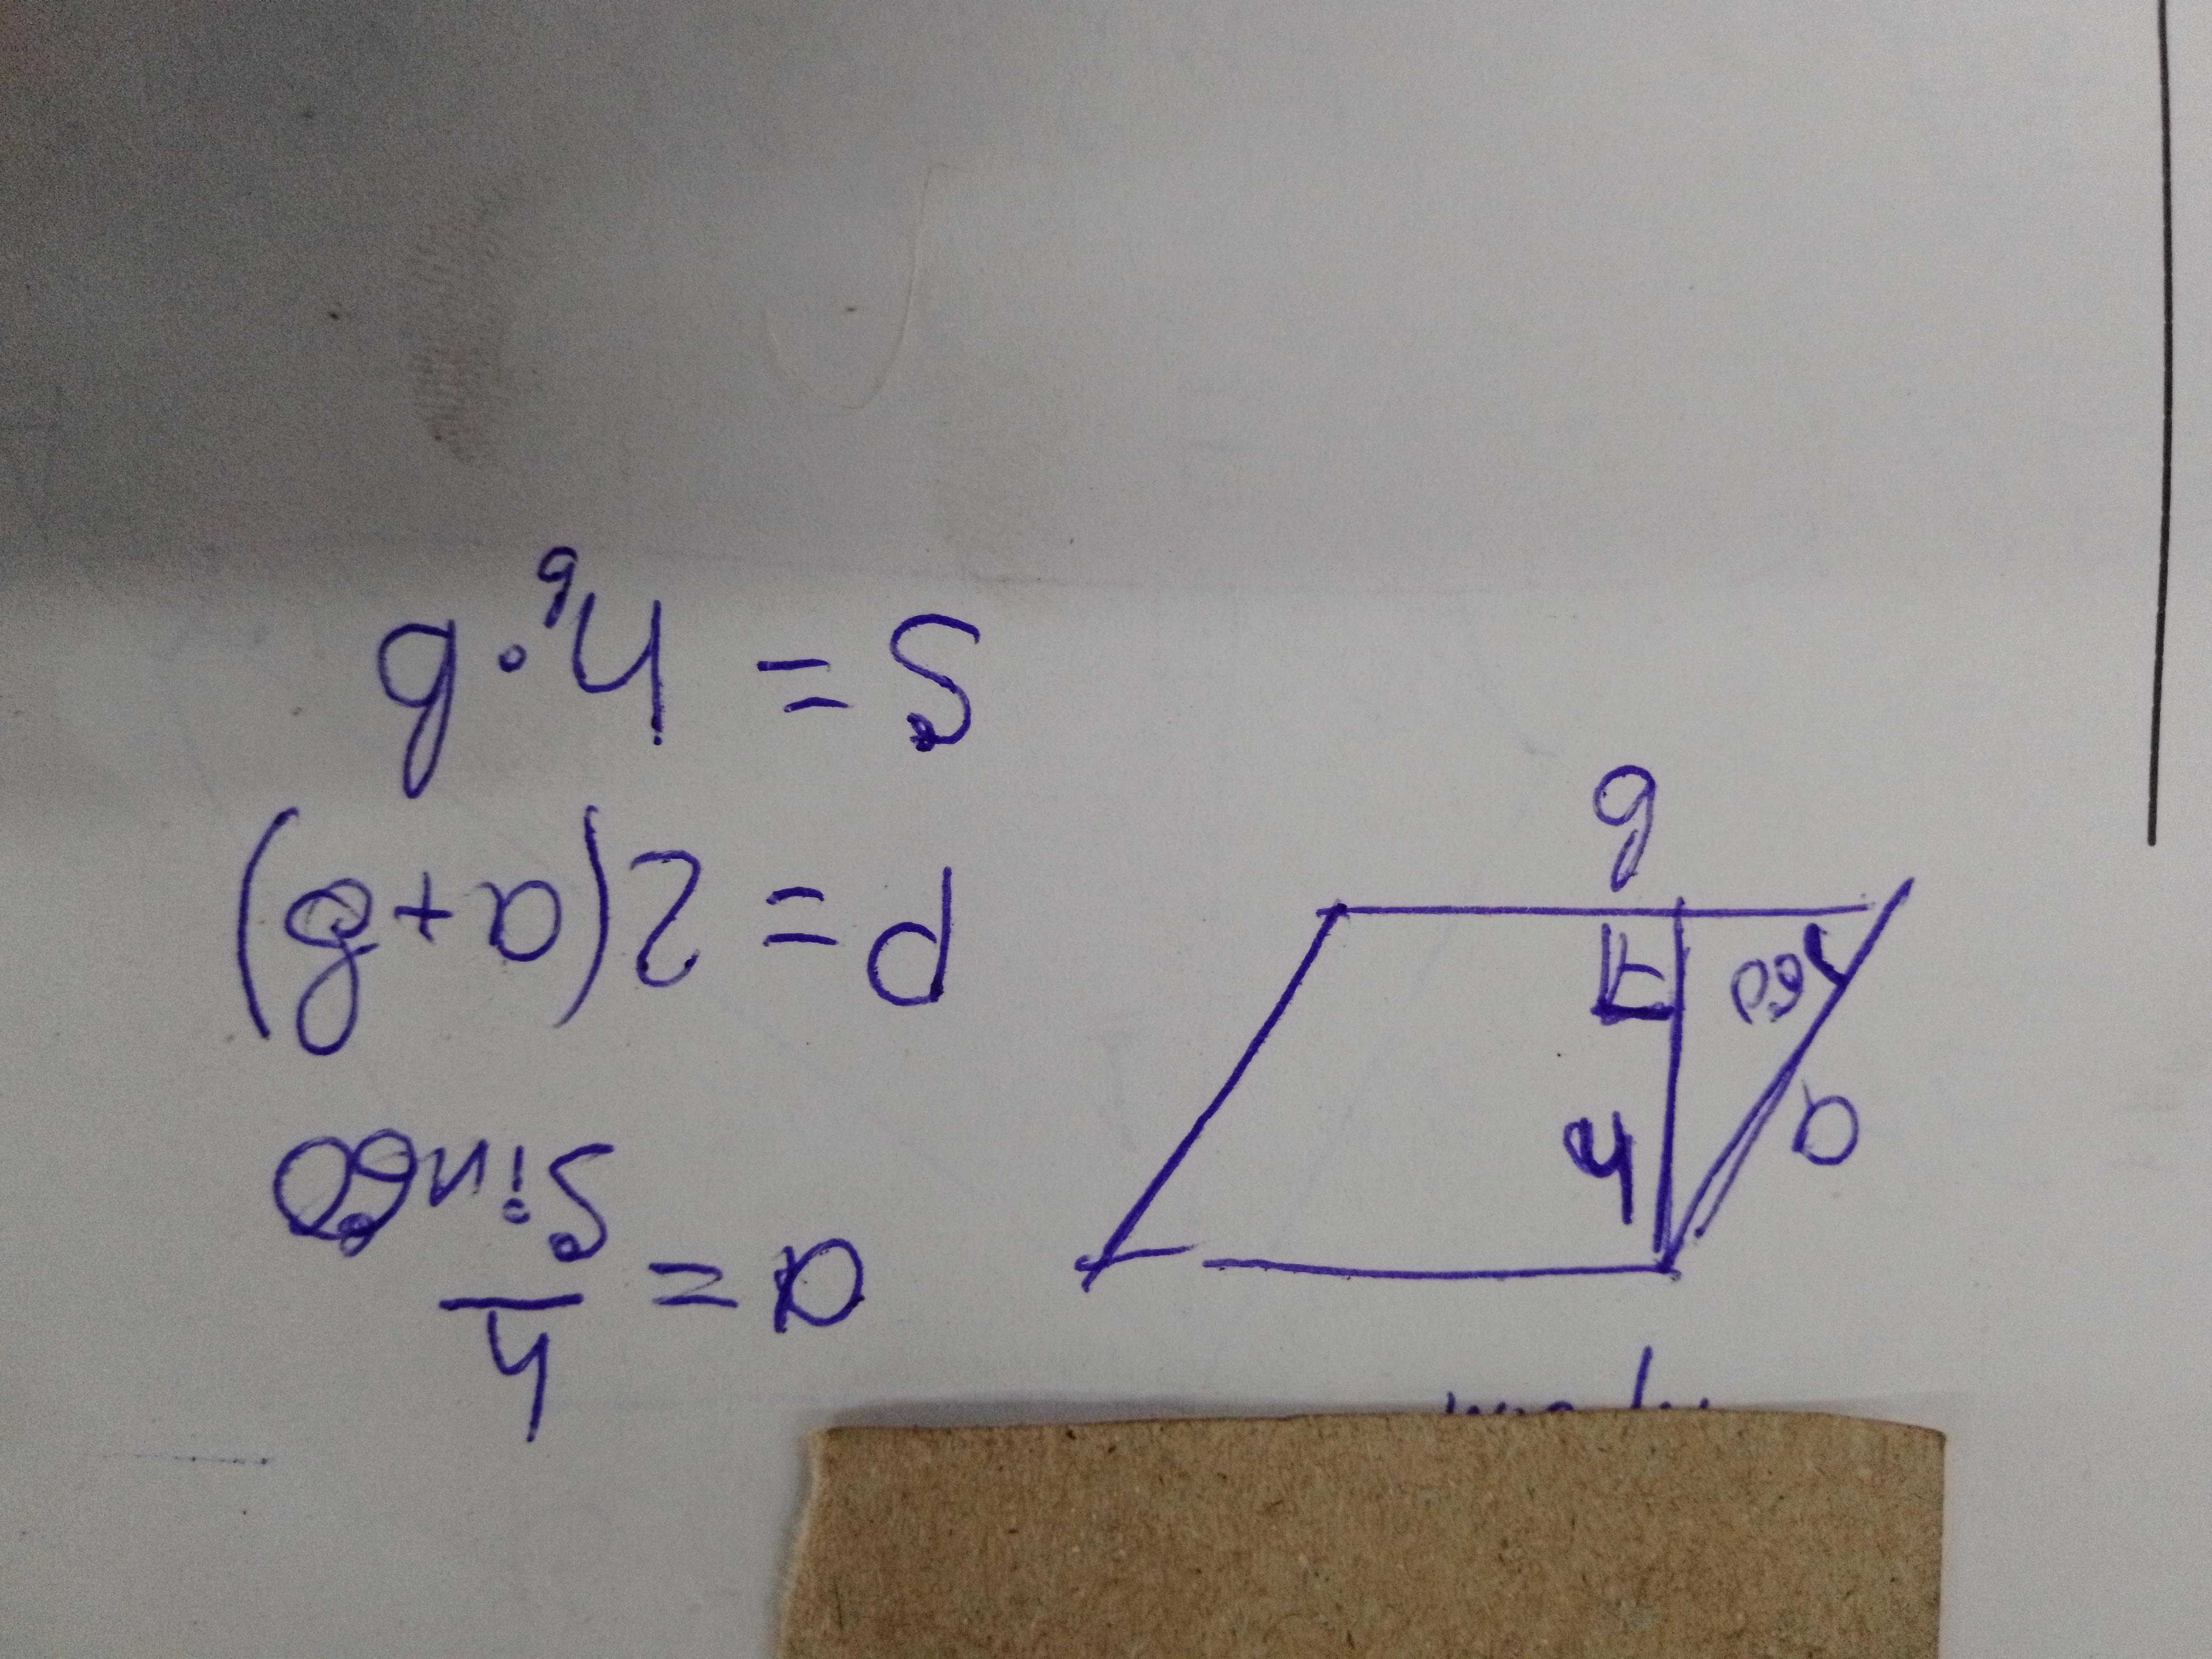 a = h/sin60
P = 2(a+b)
S = h_b · b
a
h
60
b